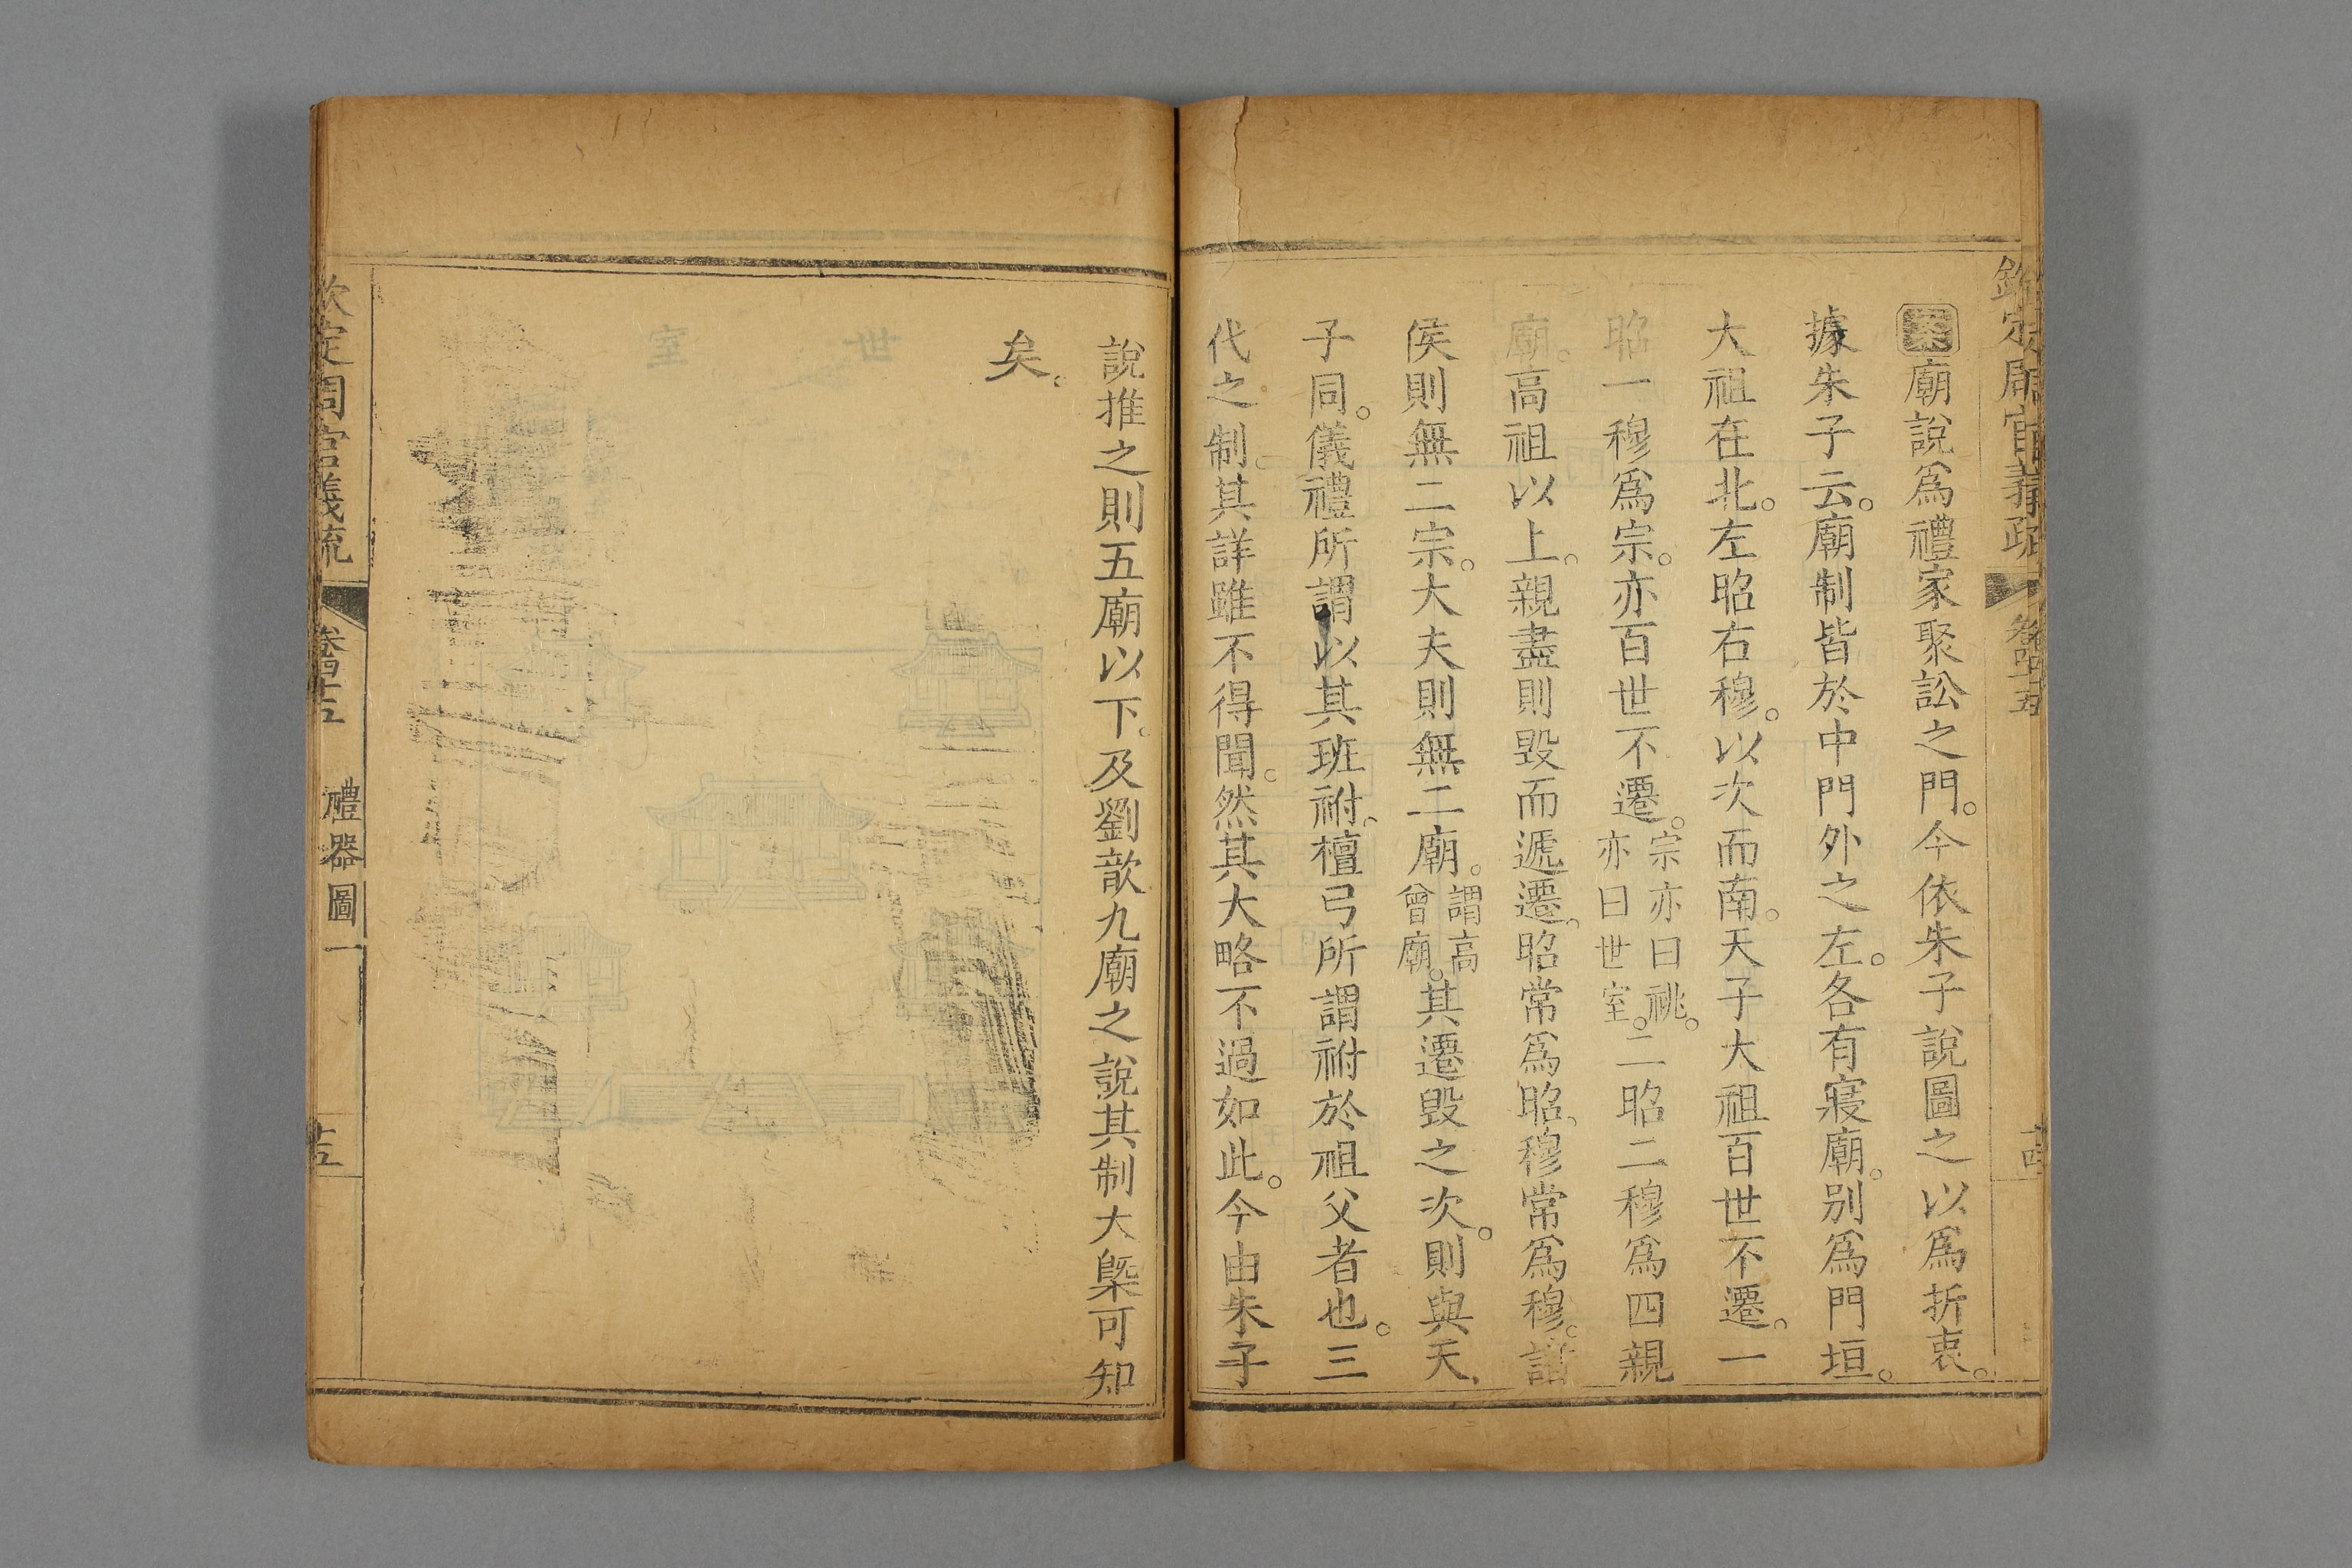 欽定周官義疏 卷四十五 十四
案廟說爲禮家聚訟之門。今依朱子說圖之以爲折衷。
據朱子云。廟制皆於中門外之左。各有寢廟。别爲門垣。
大祖在北。左昭右穆。以次而南。天子大祖百世不遷。一
昭一穆爲宗。亦百世不遷。宗亦曰祧。亦曰世室。二昭二穆爲四親
廟。高祖以上。親盡則毀而遞遷。昭常爲昭。穆常爲穆。諸
侯則無二宗。大夫則無二廟。謂高曾廟。其遷毀之次。則與天
子同。儀禮所謂以其班祔。檀弓所謂祔於祖父者也。三
代之制。其詳雖不得聞。然其大略不過如此。今由朱子
說推之則五廟以下。及劉歆九廟之說其制大槩可知
矣。
世室
欽定周官義疏 卷四十五 禮器圖一 十五